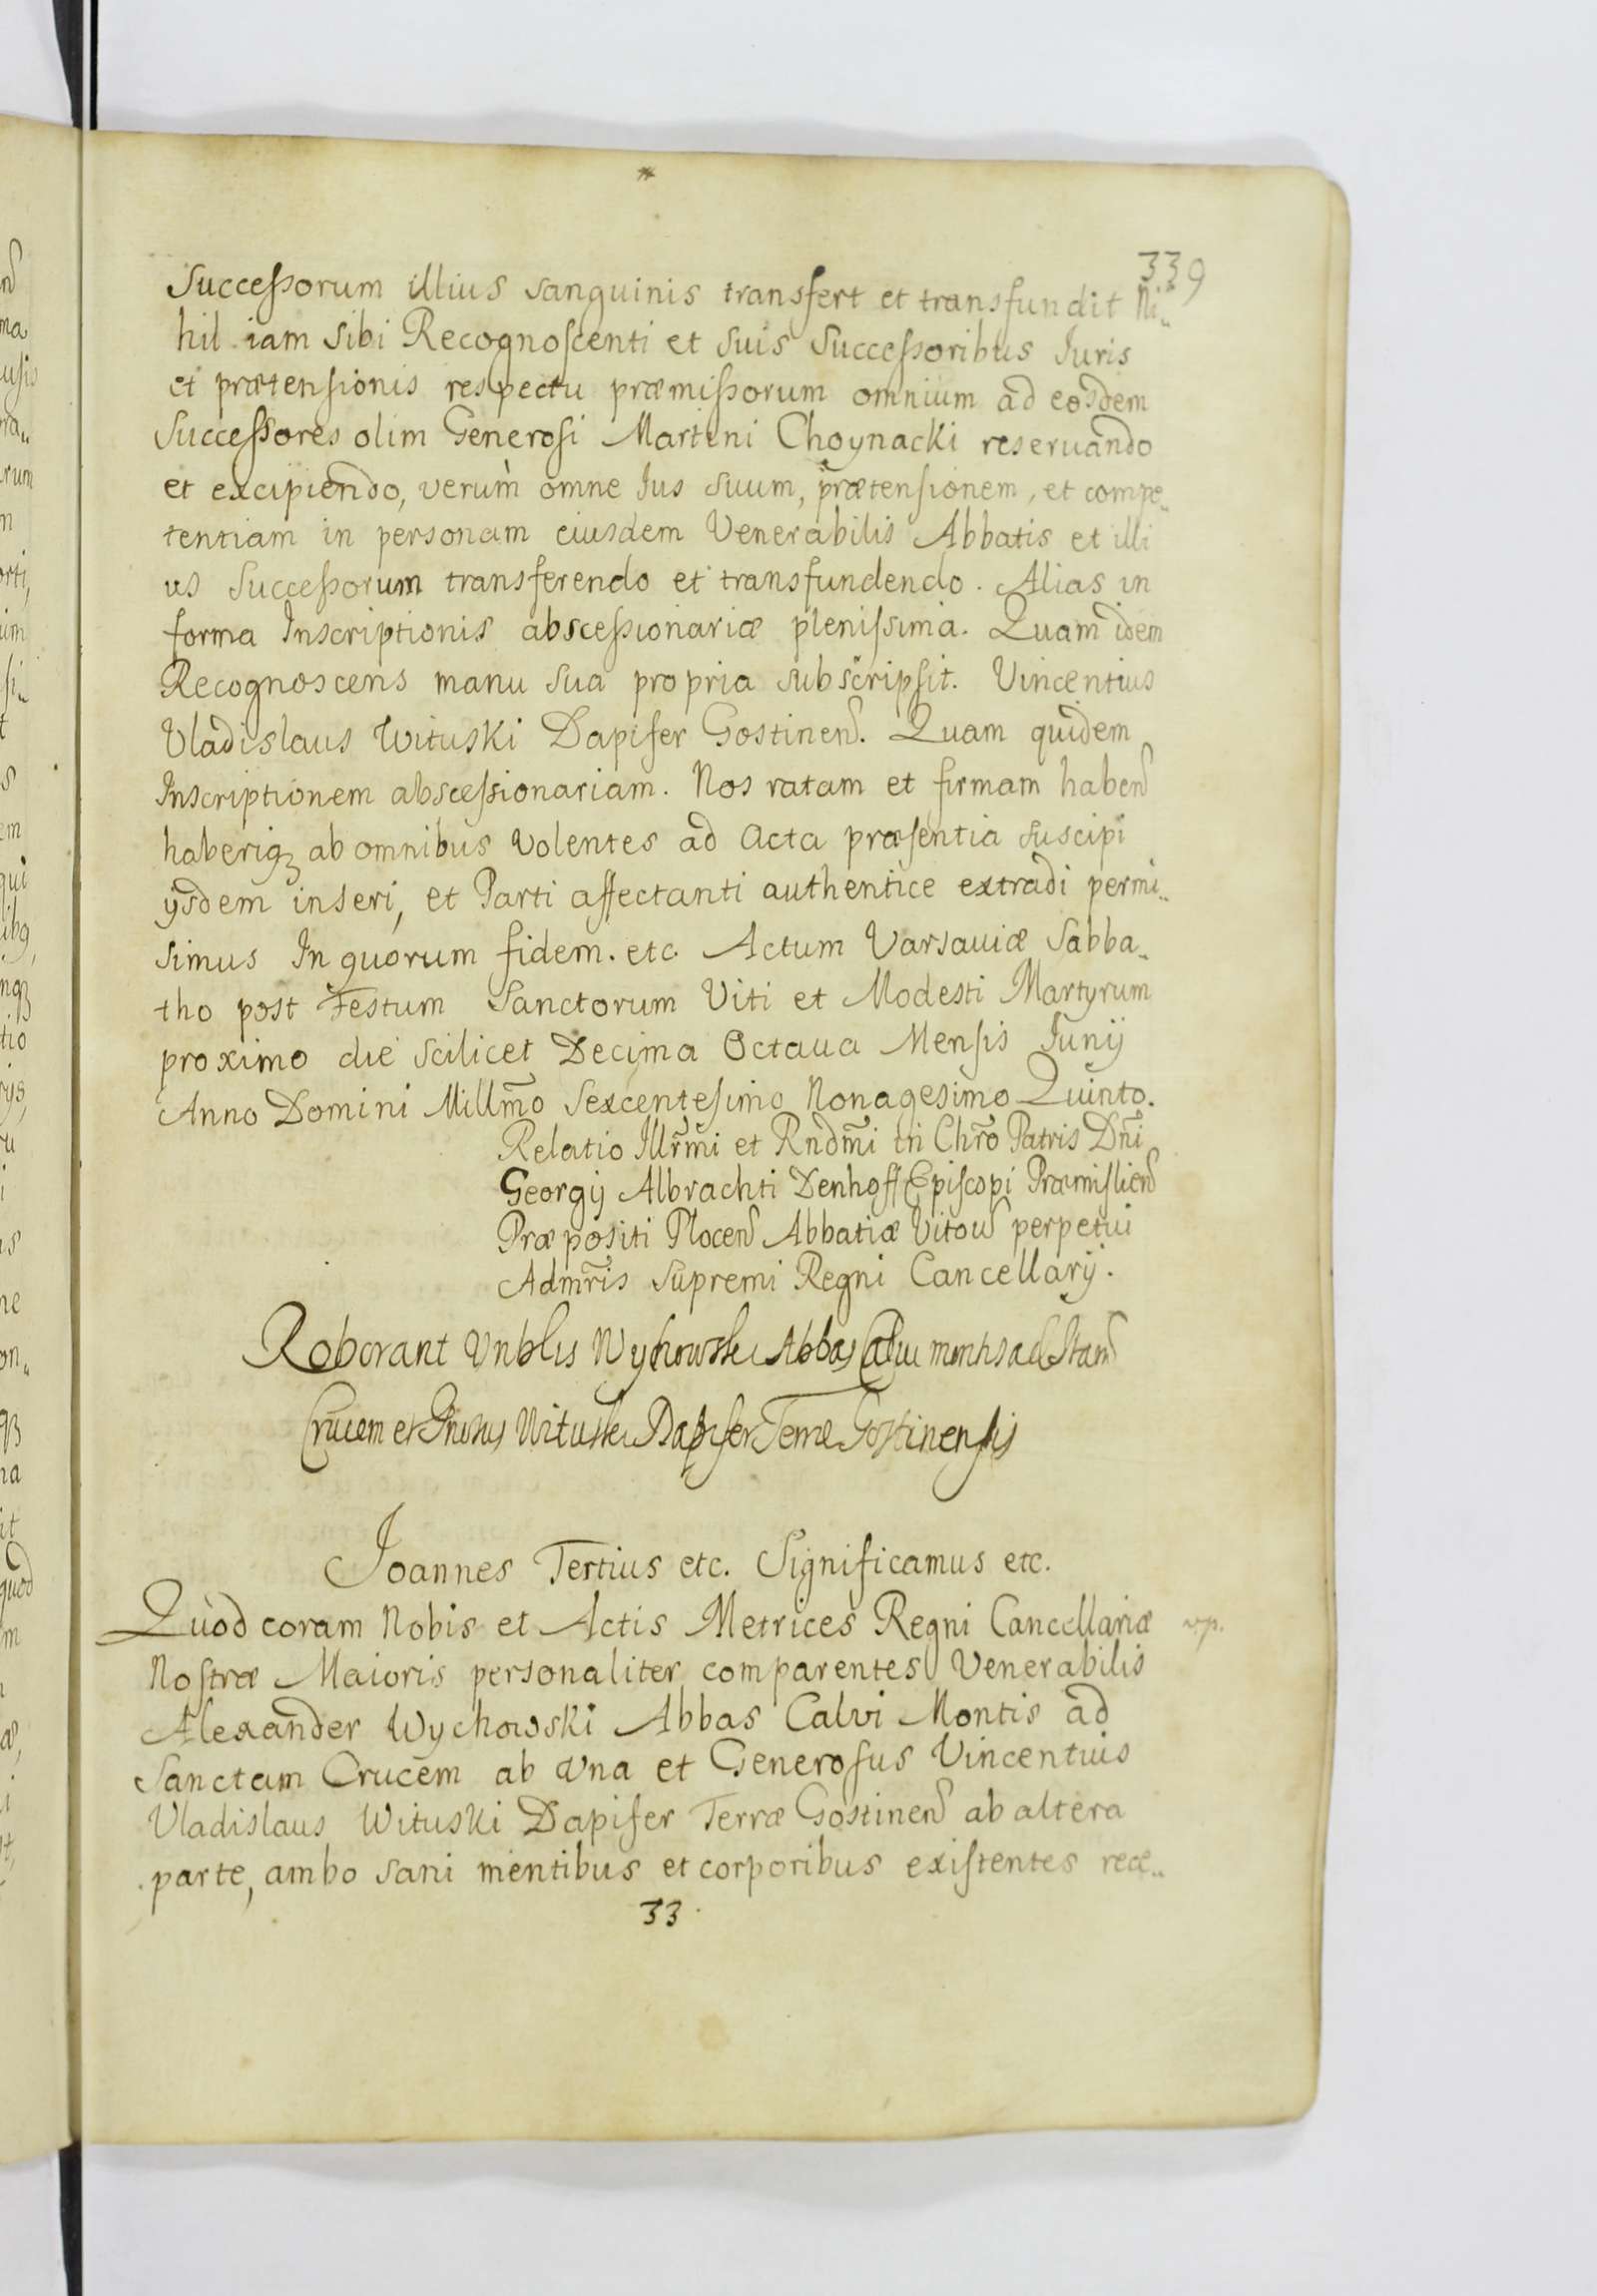 339
Successorum illius sanguinis transfert et transfundit Ni„
hil iam sibi Recognoscenti et suis Successoribus Iuris
et prætensionis respectu præmissorum omnium ad eosdem
Successores olim Generosi Martini Choynacki reseruando
et excipiendo, verum omne Ius suum, prætensionem, et compe„
tentiam in personam eiusdem Venerabilis Abbatis et illi
us Successorum transferendo et transfundendo. Alias in
forma Inscriptionis abscessionariæ plenissima. Quam idem
Recognoscens manu sua propria subscripsit. Vincentius
Vladislaus Wituski Dapifer Gostinen. Quam quidem
Inscriptionem abscessionariam. Nos ratam et firmam haben
haberiq, ab omnibus volentes ad Acta præsentia suscipi
ijsdem inseri, et Parti affectanti authentice extradi permi„
simus In quorum fidem. etc. Actum Varsauiæ Sabba„
tho post Festum Sanctorum Viti et Modesti Martyrum
proximo die scilicet Decima Octaua Mensis Junij
Anno Domini Millmo Sexcentesimo Nonagesimo Quinto.
Relatio Illrmi et Rndmi in Chro Patris Dni
Georgij Albrachti Denhoff Episcopi Præmislien
Præpositi Plocen Abbatiæ Vitow perpetui
Admris Supremi Regni Cancellarij.
Roborant Vnblis Wychowski Abbas Calui montis ad Stam
Crucem et Gnosus Wituski Dapifer Terræ Gostinensis
Joannes Tertius etc. Significamus etc.
Quod coram Nobis et Actis Metrices Regni Cancellariæ
Nostræ Maioris personaliter comparentes Venerabilis
Alexander Wychowski Abbas Calvi Montis ad
Sanctam Crucem ab una et Generosus Vincentius
Vladislaus Wituski Dapifer Terræ Gostinen ab altera
parte, ambo sani mentibus et corporibus existentes reæ„
33